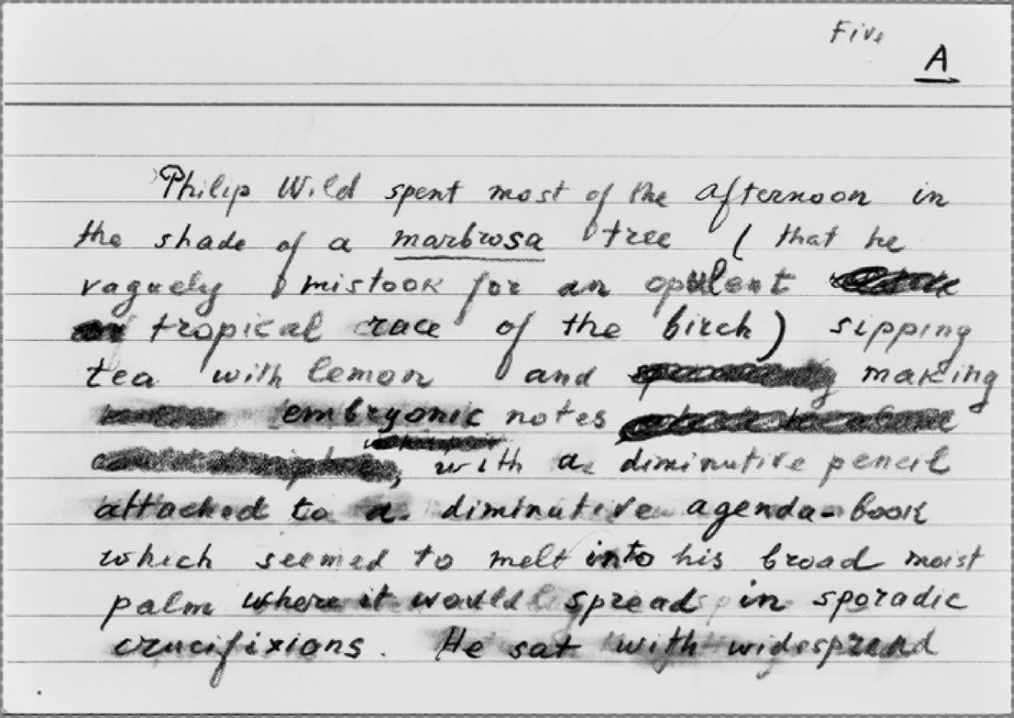 Five
A
Philip Wild spent most of the afternoon in
the shade of a marbrosa tree (that he
vaguely mistook for an opulent
tropical race of the birch) sipping
tea with lemon and making
embryonic notes
with a diminutive pencil
attached to a diminutive agenda-book
which seemed to melt into his broad moist
palm where it would spread in sporadic
crucifixions. He sat with widespread